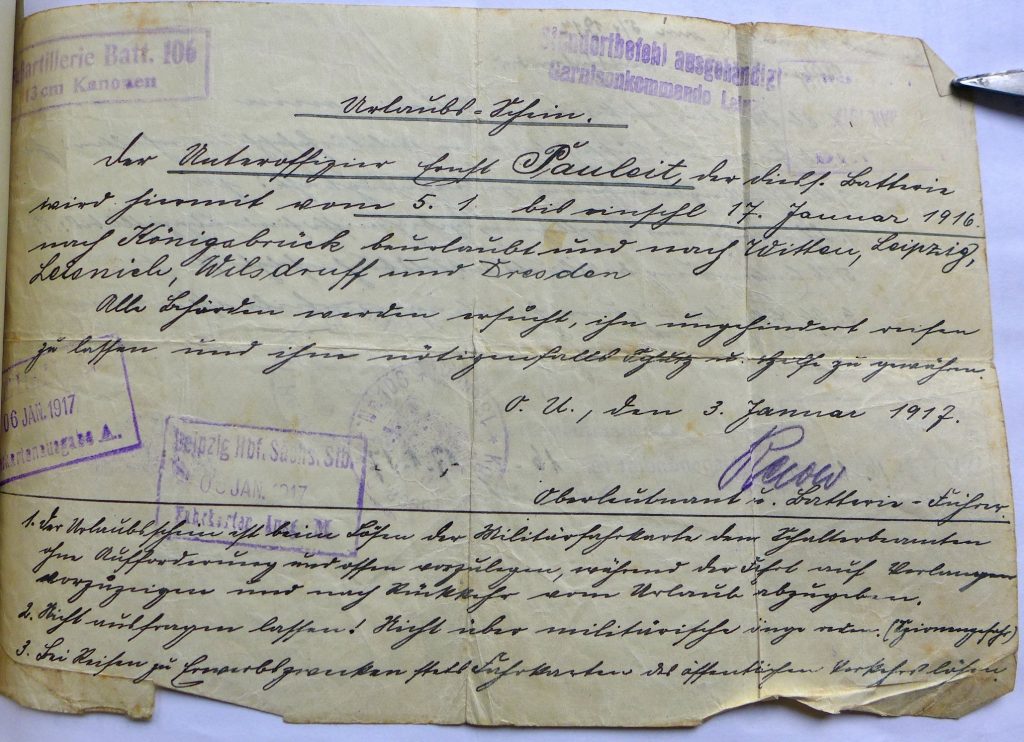 artillerie Batt. 106
13 cm Kanonen
Standortbefehl ausgehändigt
Garnisonkommando Lei
Urlaubs-Schein.
Der Unteroffizier Ernst Pauleit, der diess. Batterie
wird hiermit vom 5. 1. bis einschl 17. Januar 1916.
nach Königsbrück beurlaubt und nach Witten, Leipzig,
Leisnich, Wilsdruff und Dresden
Alle Behörden werden ersucht, ihn ungehindert reisen
zu lassen und ihm nötigenfalls Schutz u. Hilfe zu gewähren.
O. U., den 3. Januar 1917.
06 JAN. 1917
kartenausgabe A.
Leipzig Hbf. Sächs. Stb.
06 JAN. 1917
Fahrkarten
Oberleutnant u. Batterie-Führer.
1. Der Urlaubsschein ist beim Lösen der Militärfahrkarte dem Schalterbeamten
ohne Aufforderung und offen vorzulegen, während der Fahrt auf Verlangen
vorzuzeigen und nach Rückkehr vom Urlaub abzugeben.
2. Nicht ausfragen lassen! Nicht über militärische Dinge reden. (Spionengefahr)
3. Bei Reisen zu Erwerbszwecken stets Fahrkarten des öffentlichen Verkehrs lösen.